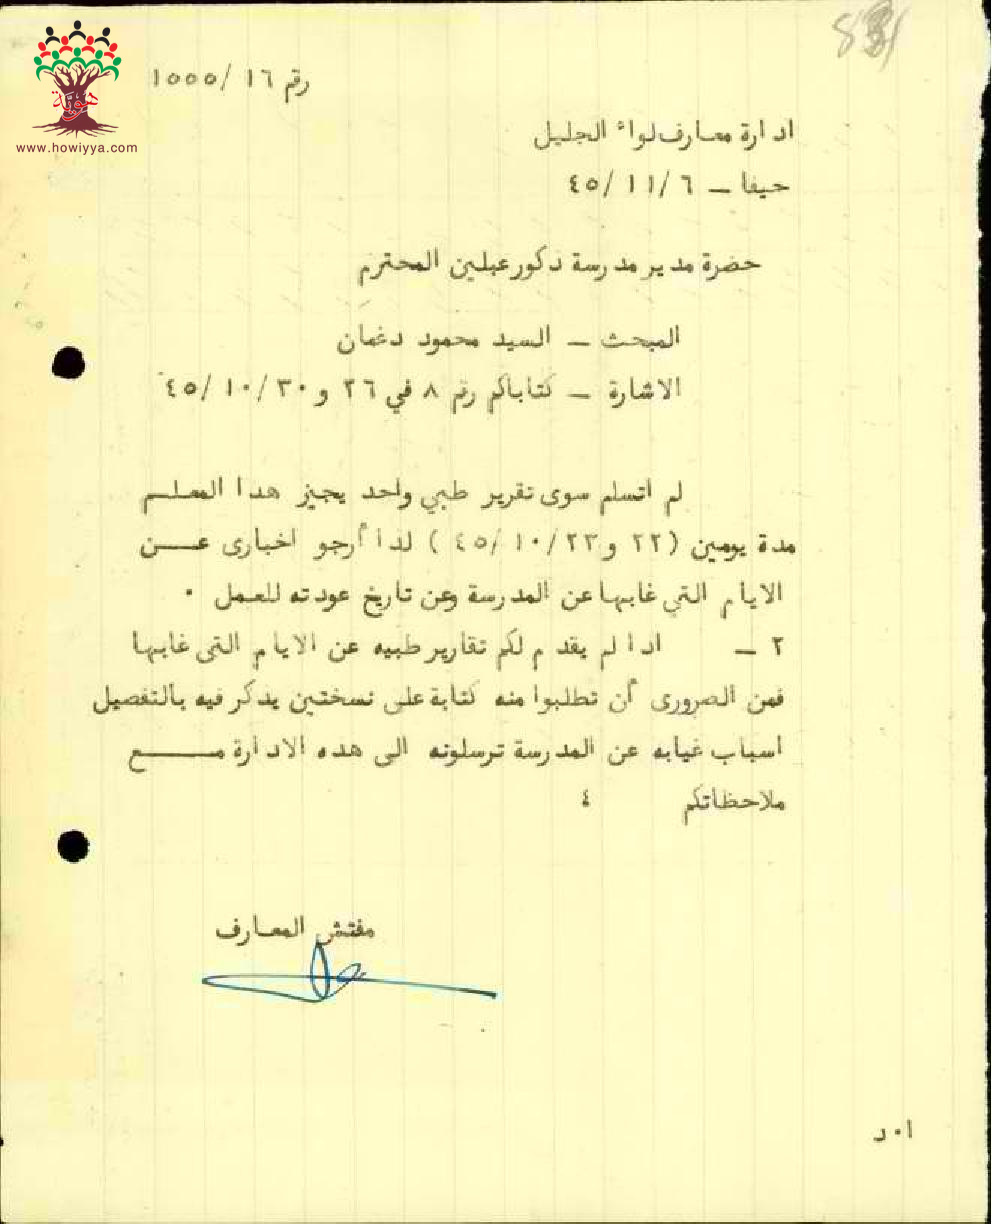 هوية
www.howiyya.com
رقم ١٦ /١٥٥٥
ادارة معارف لواء الجليل
حيفا – ٦ /١١ /٤٥
حضرة مدير مدرسة ذكور عبلين المحترم
المبحث – السيد محمود دغمان
الاشارة – كتاباكم رقم ٨ في ٢٦ و ٣٠ /١٠ /٤٥
لم أتسلم سوى تقرير طبي واحد يجيز هدا المعلم
مدة يومين (٢٢ و٢٣ /١٠ /٤٥ ) لدا أرجو اخبارى عن
الايام التي غابها عن المدرسة وعن تاريخ عودته للعمل ٠
٢ – ادا لم يقدم لكم تقارير طبيه عن الايام التى غابها
فمن الضرورى أن تطلبوا منه كتابة على نسختين يدكر فيه بالتفصيل
اسباب غيابه عن المدرسة ترسلونه الى هده الادارة مع
ملاحظاتكم ٤
مفتش المعارف
ا٠د